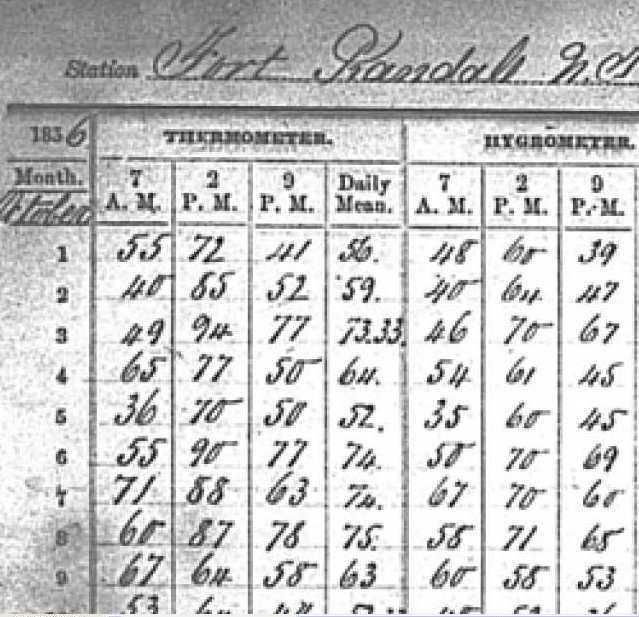 Station Fort Randall N.T
1856 THERMOMETER. HYGROMETER.
Month. 7 2 9 Daily 7 2 9
October A. M. P. M. P. M. Mean. A. M. P. M. P. M.
1 55 72 41 56. 48 60 39
2 40 85 52 59. 40 64 47
3 49 94 77 73.33. 46 70 67
4 65 77 50 64. 54 61 45
5 36 70 50 52. 35 60 45
6 55 90 77 74. 50 70 69
7 71 88 63 74. 67 70 60
8 60 87 78 75. 58 71 68
9 67 64 58 63 60 58 53
53